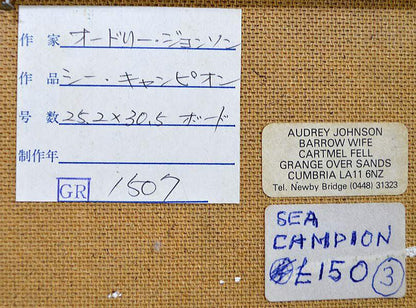 作家 オードリー・ジョンソン
作品 シー・キャンピオン
号数 25.2×30.5 ボード
制作年
GR 1507
AUDREY JOHNSON
BARROW WIFE
CARTMEL FELL
GRANGE OVER SANDS
CUMBRIA LA11 6NZ
Tel. Newby Bridge (0448) 31323
SEA
CAMPION
£150 3